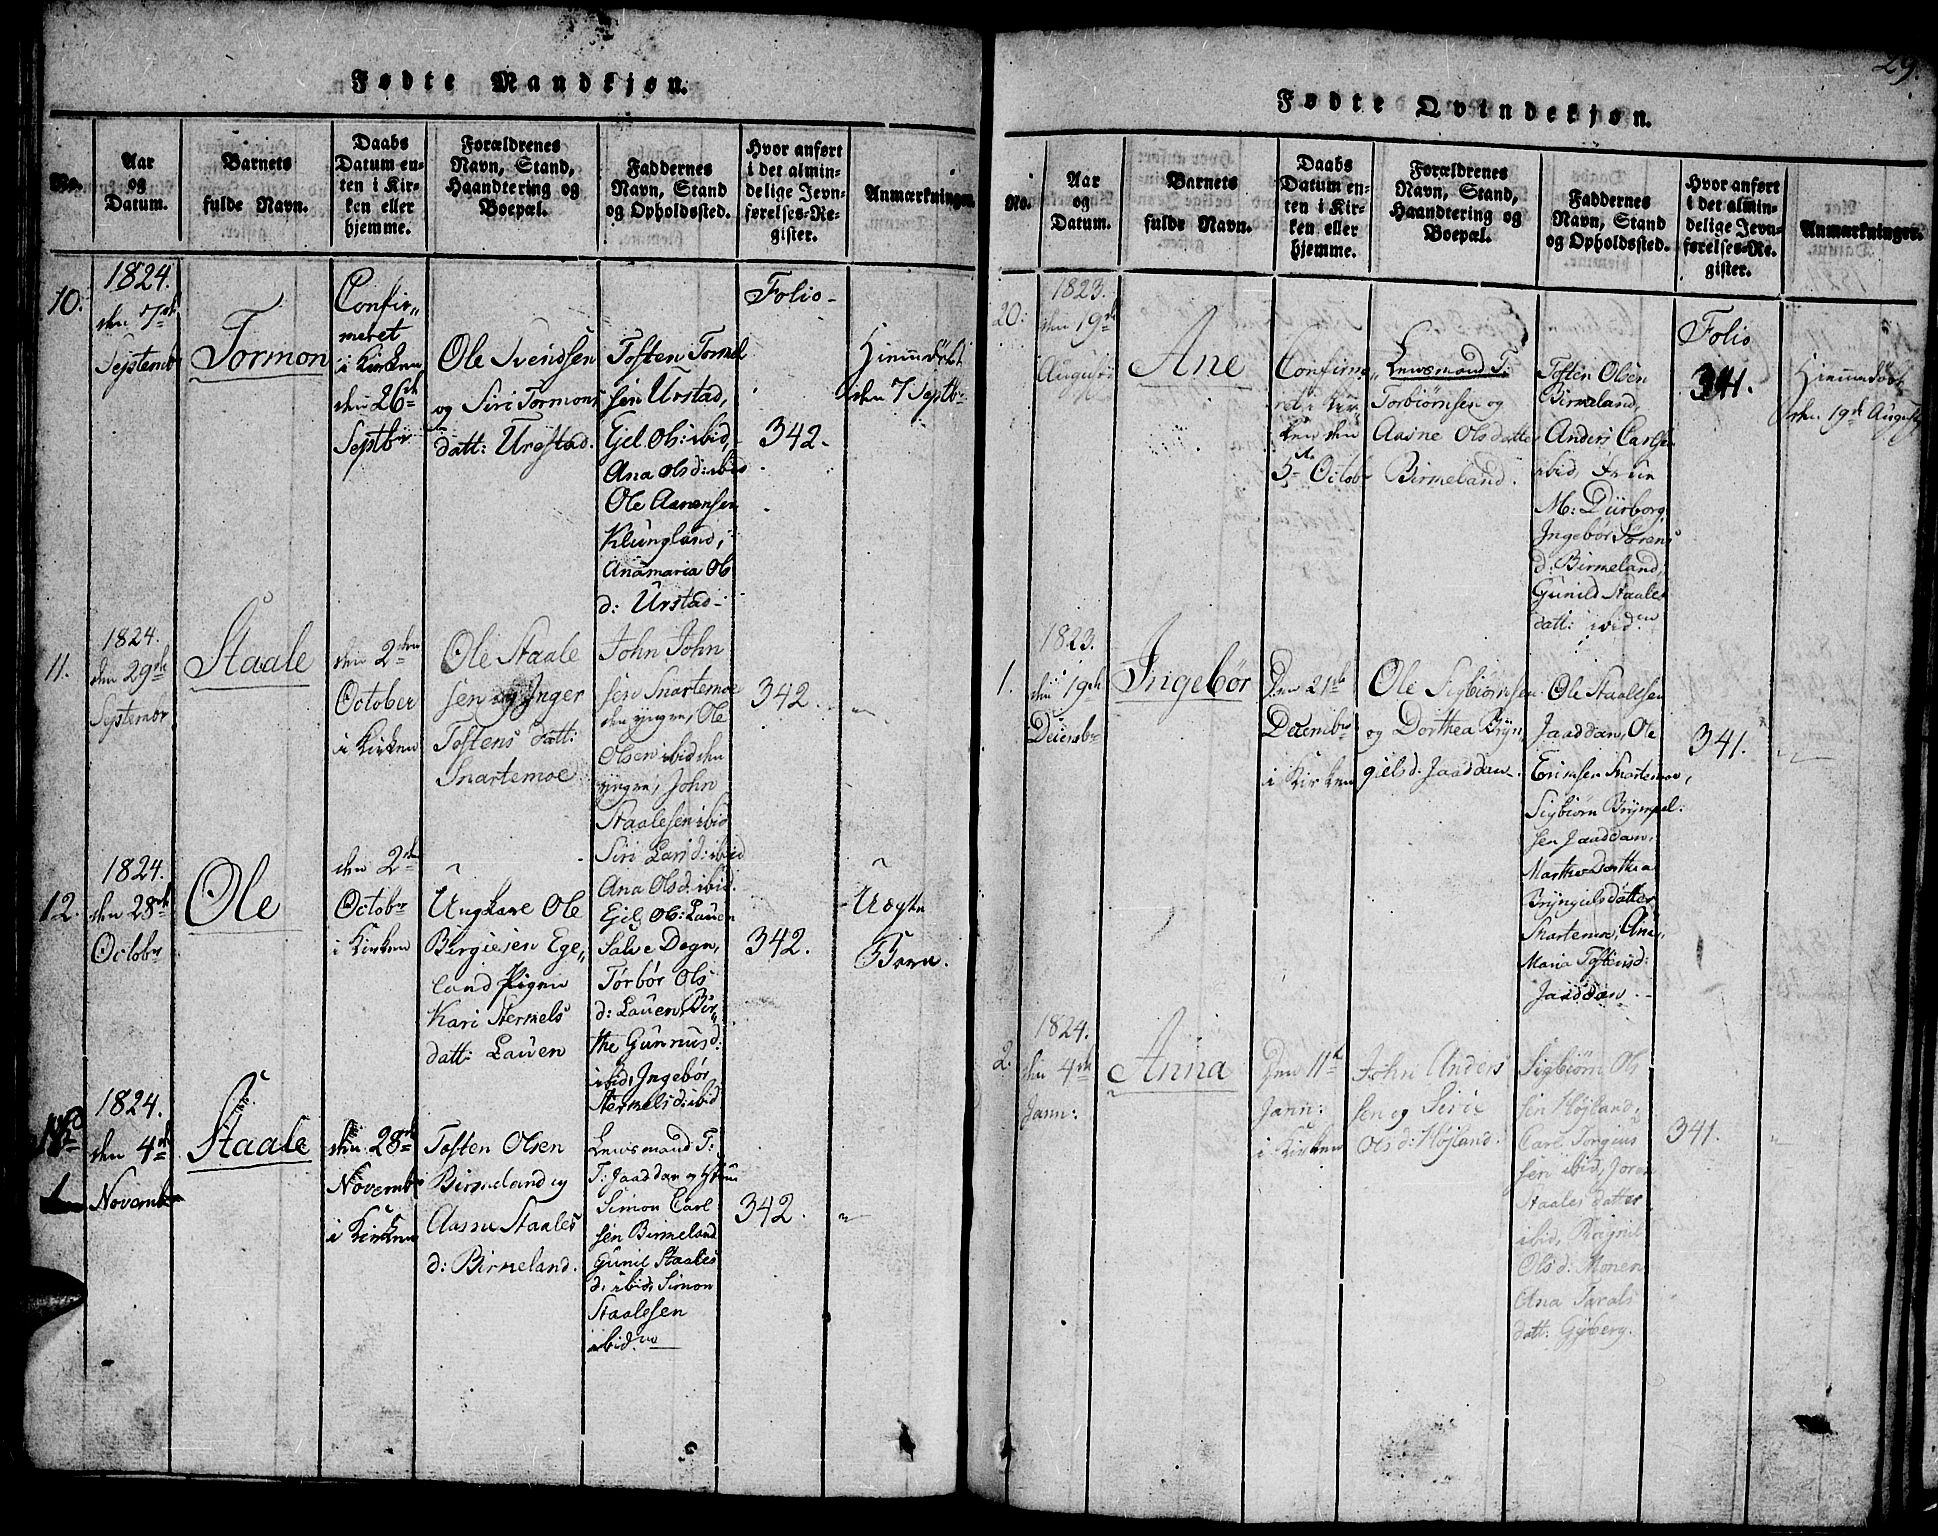 Fødte Mandkjøn.
No.
Aar
og
Datum.
Barnets
fulde Navn.
Daabs
Datum en-
ten i Kir-
ken eller
hjemme.
Forældrenes
Navn, Stand,
Haandtering og
Boepæl.
Faddernes
Navn, Stand
og Opholdssted.
Hvor anført
i det almin-
delige Jevn-
førelses-Re-
gister.
Anmærkninger.
10.
1824.
den 7de
Septembr
Tormon
Confir„
meret
i Kirken
den 26de
Septbr
Ole Svendsen
og Siri Tormons
datt: Urestad.
Tosten Tormol
sen Urstad,
Gjel Ols: ibid,
Ana Olsd: ibid
Ole Aanensen
Klungland,
Anamaria Ols
d: Urstad
Folio
342.
Hiemmedøbt
den 7 Septbr
11.
1824.
den 29de
Septembr
Staale
den 2den
October
i Kirken
Ole Staale
sen og Inger
Tostens datt:
Snartemoe
John John
sen Snartemoe
den yngre, Ole
Olsen ibid den
yngre, John
Staalesen ibid
Siri Larsd: ibid
Ana Olsd: ibid.
342.
12.
1824.
den 28de
Octobr
Ole
den 2den
Octobr
i Kirken
Ungkarl Ole
Birgiesen Ege„
land Pigen
Kari Stermels
datt: Lauen
Gjel Ols: Lauen
Salve Degn,
Torbør Ols
d: Lauen, Bir„
the Gunnusd:
ibid, Ingebør
Stermelsd: ibid
342.
Uægte
Barn.
1824.
den 4de
Novembr
Staale
den 28de
Novembr
i Kirken
Tosten Olsen
Birmeland og
Aasne Staales
d: Birmeland.
Lensmand T:
T: Jaaddan og Frue
Simon Carl
sen Birmeland
Gunil Staales
d: ibid, Simon
Staalesen
ibid
342.
29.
Fødte Qvindekjøn.
No.
Aar
og
Datum.
Barnets
fulde Navn.
Daabs
Datum en-
ten i Kir-
ken eller
hjemme.
Forældrenes
Navn, Stand,
Haandtering og
Boepæl.
Faddernes
Navn, Stand
og Opholdssted.
Hvor anført
i det almin-
delige Jevn-
førelses-Re-
gister.
Anmærkninger.
20.
1823.
den 19de
August
Ane
Confirme„
ret i Kir
ken den
5te Octobr
Lensmand T:
Torbiørnsen og
Aasne Olsdatter
Birmeland.
Tosten Olsen
Birmeland,
Anders Carlsen
ibid, Frue
M: Dürborg
Ingebør Sørens
d: Birmeland,
Gunild Staales
datt: ibid
Folio
341.
Hiemmedøbt
den 19de August
1.
1823.
den 19de
Decembr
Ingebør
Den 21de
Decembr
i Kirken
Ole Sigbiørnsen
og Dorthea Bryn
gielsd. Jaaddan.
Ole Staalesen
Jaaddan, Ole
Snartemoe,
Sigbiørn Bryngel:
sen Jaaddan,
Marthe Dorthea
Bryngielsdatter
Snartemoe, Ana
Maria Tostensd:
Jaaddan
341.
2.
1824.
den 4de
Jann:
Anna
Den 11te
Jann:
i Kirken
John Anders
sen og Sirie
Olsd: Højland.
Sigbiørn Ols
sen Højland,
Carl Torgius
sen ibid, Joran
Staales datter
ibid, Ragnil
Olsd. Monen
Ana Tarals
datt: Gyberg.
341.